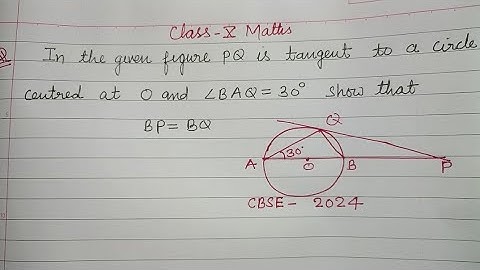 Class-X Maths
Q In the given figure PQ is tangent to a circle
centred at O and ∠BAQ = 30° show that
BP = BQ
Q
A 30° O B P
CBSE - 2024